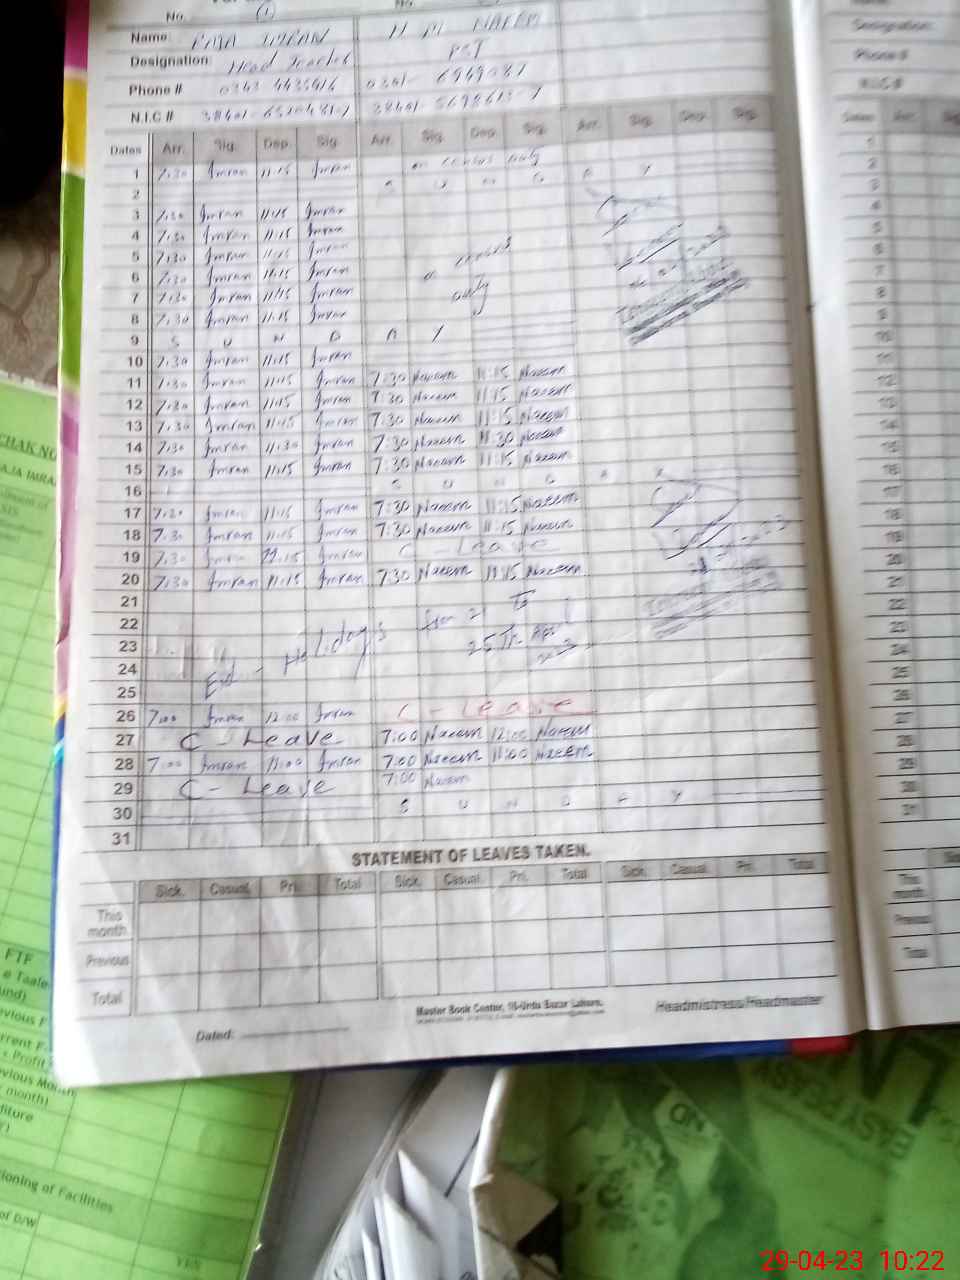 No. (1) No.
Name: RAJA IMRAN M NAEEM
Designation: Head Teacher PST
Phone # 0343 0301- 6949087
N.I.C # 38401- 38401-
Dates Arr. Sig. Dep. Sig. Arr. Sig. Dep. Sig. Arr. Sig. Dep. Sig.
1 7:30 Imran 11:15 Imran on census duty
2 S U N D A Y
3 7:30 Imran 11:15 Imran
4 7:30 Imran 11:15 Imran
5 7:30 Imran 11:15 Imran on census
6 7:30 Imran 11:15 Imran duty
7 7:30 Imran 11:15 Imran
8 7:30 Imran 11:15 Imran
9 S U N D A Y
10 7:30 Imran 11:15 Imran
11 7:30 Imran 11:15 Imran 7:30 Naeem 11:15 Naeem
12 7:30 Imran 11:15 Imran 7:30 Naeem 11:15 Naeem
13 7:30 Imran 11:15 Imran 7:30 Naeem 11:15 Naeem
14 7:30 Imran 11:30 Imran 7:30 Naeem 11:30 Naeem
15 7:30 Imran 11:15 Imran 7:30 Naeem 11:15 Naeem
16 S U N D A Y
17 7:30 Imran 11:15 Imran 7:30 Naeem 11:15 Naeem
18 7:30 Imran 11:15 Imran 7:30 Naeem 11:15 Naeem
19 7:30 Imran 11:15 Imran C - Leave
20 7:30 Imran 11:15 Imran 7:30 Naeem 11:15 Naeem
21
22 Eid - Holidays from 21 To
23 25 Apr
24
25
26 7:00 Imran 12:00 Imran C - Leave
27 C - Leave 7:00 Naeem 12:00 Naeem
28 7:00 Imran 11:00 Imran 7:00 Naeem 11:00 Naeem
29 C - Leave 7:00 Naeem
30 S U N D A Y
31
STATEMENT OF LEAVES TAKEN.
Sick. Casual. Pri. Total Sick. Casual. Pri. Total Sick. Casual. Pri. Total
This month.
Previous
Total
Master Book Center, 16-Urdu Bazar Lahore.
Headmistress/Headmaster
Dated:
Designation:
Phone #
N.I.C #
Dates Arr.
1
2
3
4
5
6
7
8
9
10
11
12
13
14
15
16
17
18
19
20
21
22
23
24
25
26
27
28
29
30
31
This month.
Previous
Total
CHAK NO
AJA IMRA
FTF
und)
evious
rrent F
month)
diture
ioning of Facilities
of D/W
YES
29-04-23 10:22